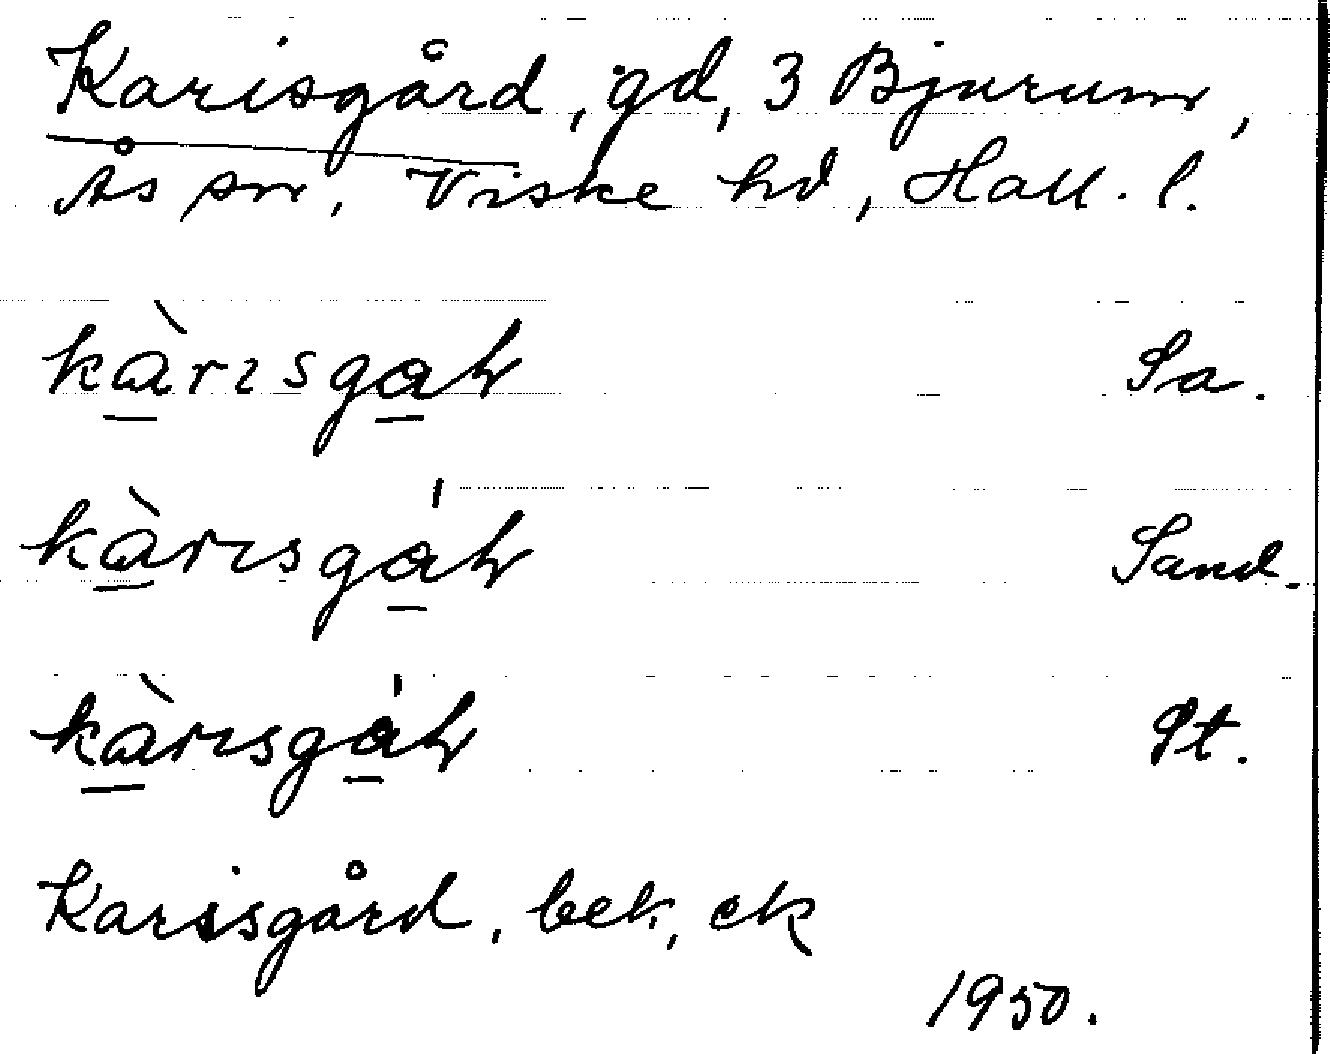 Karisgård, gd, 3 Bjurum,
Ås sn, Viske hd, Hall. l.
kàrısgaḷ Sa.
kàrısgáḷ Sand.
kàrısgáḷ St.
Karisgård, bek, ek
1950.